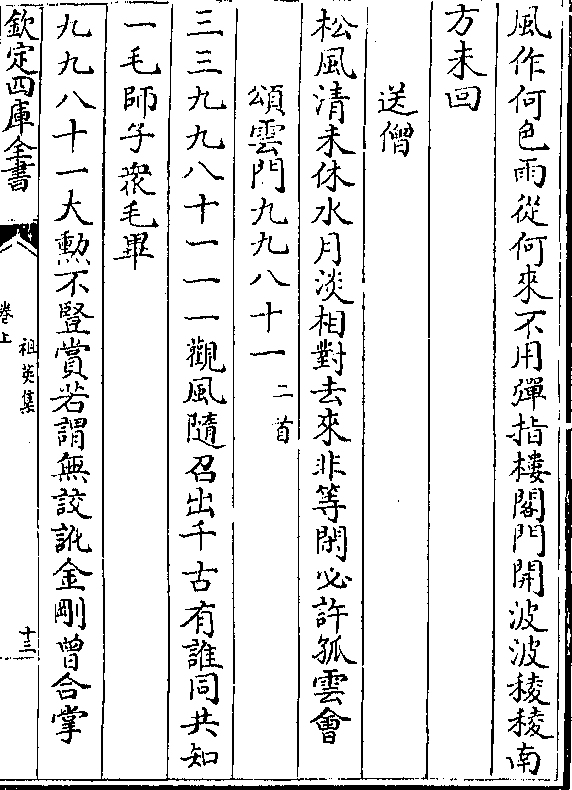 風作何色雨從何來不用彈指樓閣門開波波稜稜南
方未回
送僧
松風清未休水月淡相對去來非等閑必許孤雲會
頌雲門九九八十一 二首
三三九九八十一一一觀風隨召出千古有誰同共知
一毛師子衆毛畢
九九八十一大勲不豎賞若謂無誵訛金剛曾合掌
欽定四庫全書
祖英集
卷上
十三